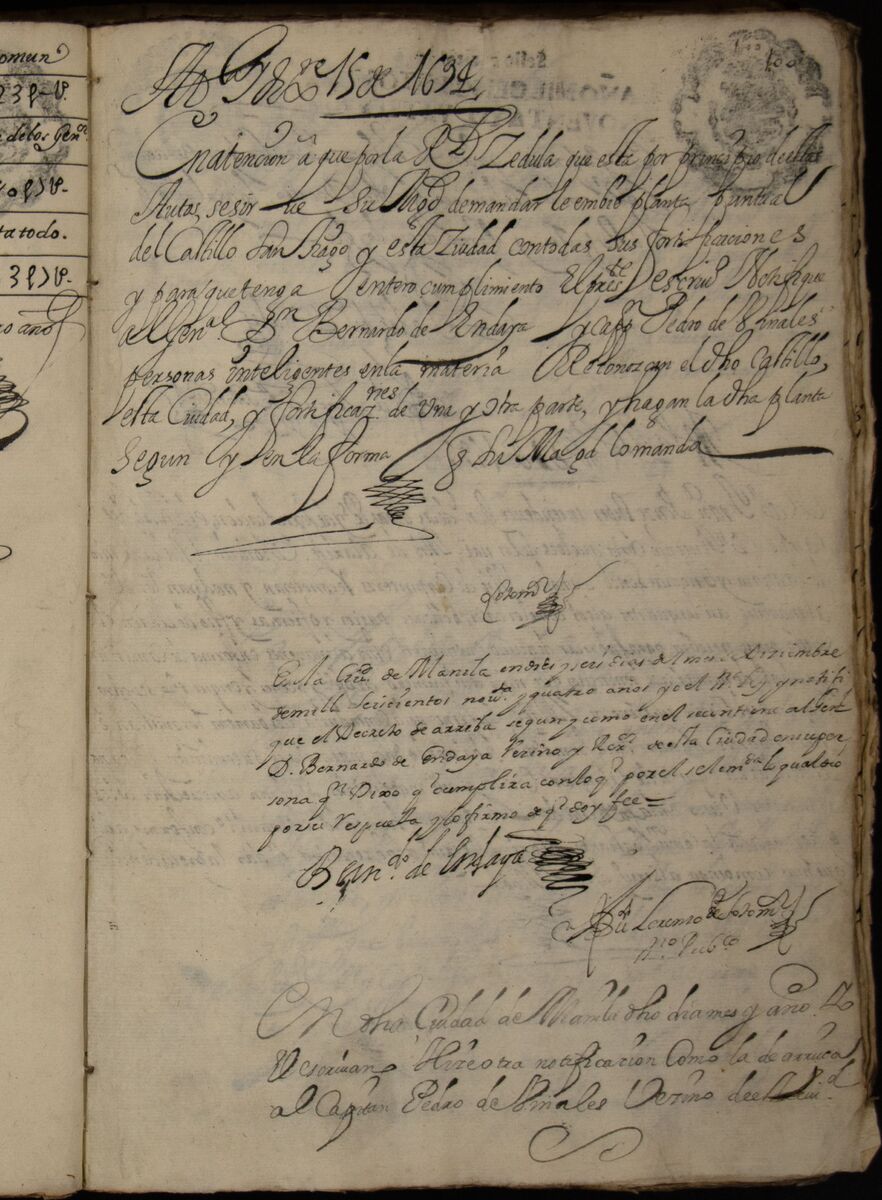 omun
100
239-V.
de los Gen.s
V.
ta todo.
V.
año
15 de 1694
En atencion â que por la Rl Zedula que esta por principio de estos
Autos, se sir ve Su Magd de mandar le embie planta puntual
del Castillo San tiago y esta Ziudad con todas sus fortificaciones
y para que tenga entero cumplimiento El preste Escriuo Notifique
al Genl Dn Bernardo de Endaya y capn Pedro de Vinales
personas inteligentes en la materia Reconozcan el dho Castillo,
esta Ciudad, y fortificaznes de Una y Otra parte, y hagan la dha planta
Segun y en la forma q Su Magd lo manda
En la Ciud de Manila en dies y seis dias del mes de Diziembre
de mill Seiscientos novta y quatro años yo el Ley y notifi
que el Decreto de arriba segun y como en el se contiene al Genl
D. Bernardo de Endaya Vezino y Rexor de esta Ciudad en su per
sona qn Dixo q cumplira con lo q por el se le mda lo qual dio
por su respuesta y lo firmo de q doy fee =
Berndo de Endaya
Lorenzo de
no Pubco
En dha Ciudad de Manila dho dia mes y año Yo
el Escriuano Hize otra notificacion Como la de arriua
al Capitan Pedro de Vinales Vezino de esta Ciud